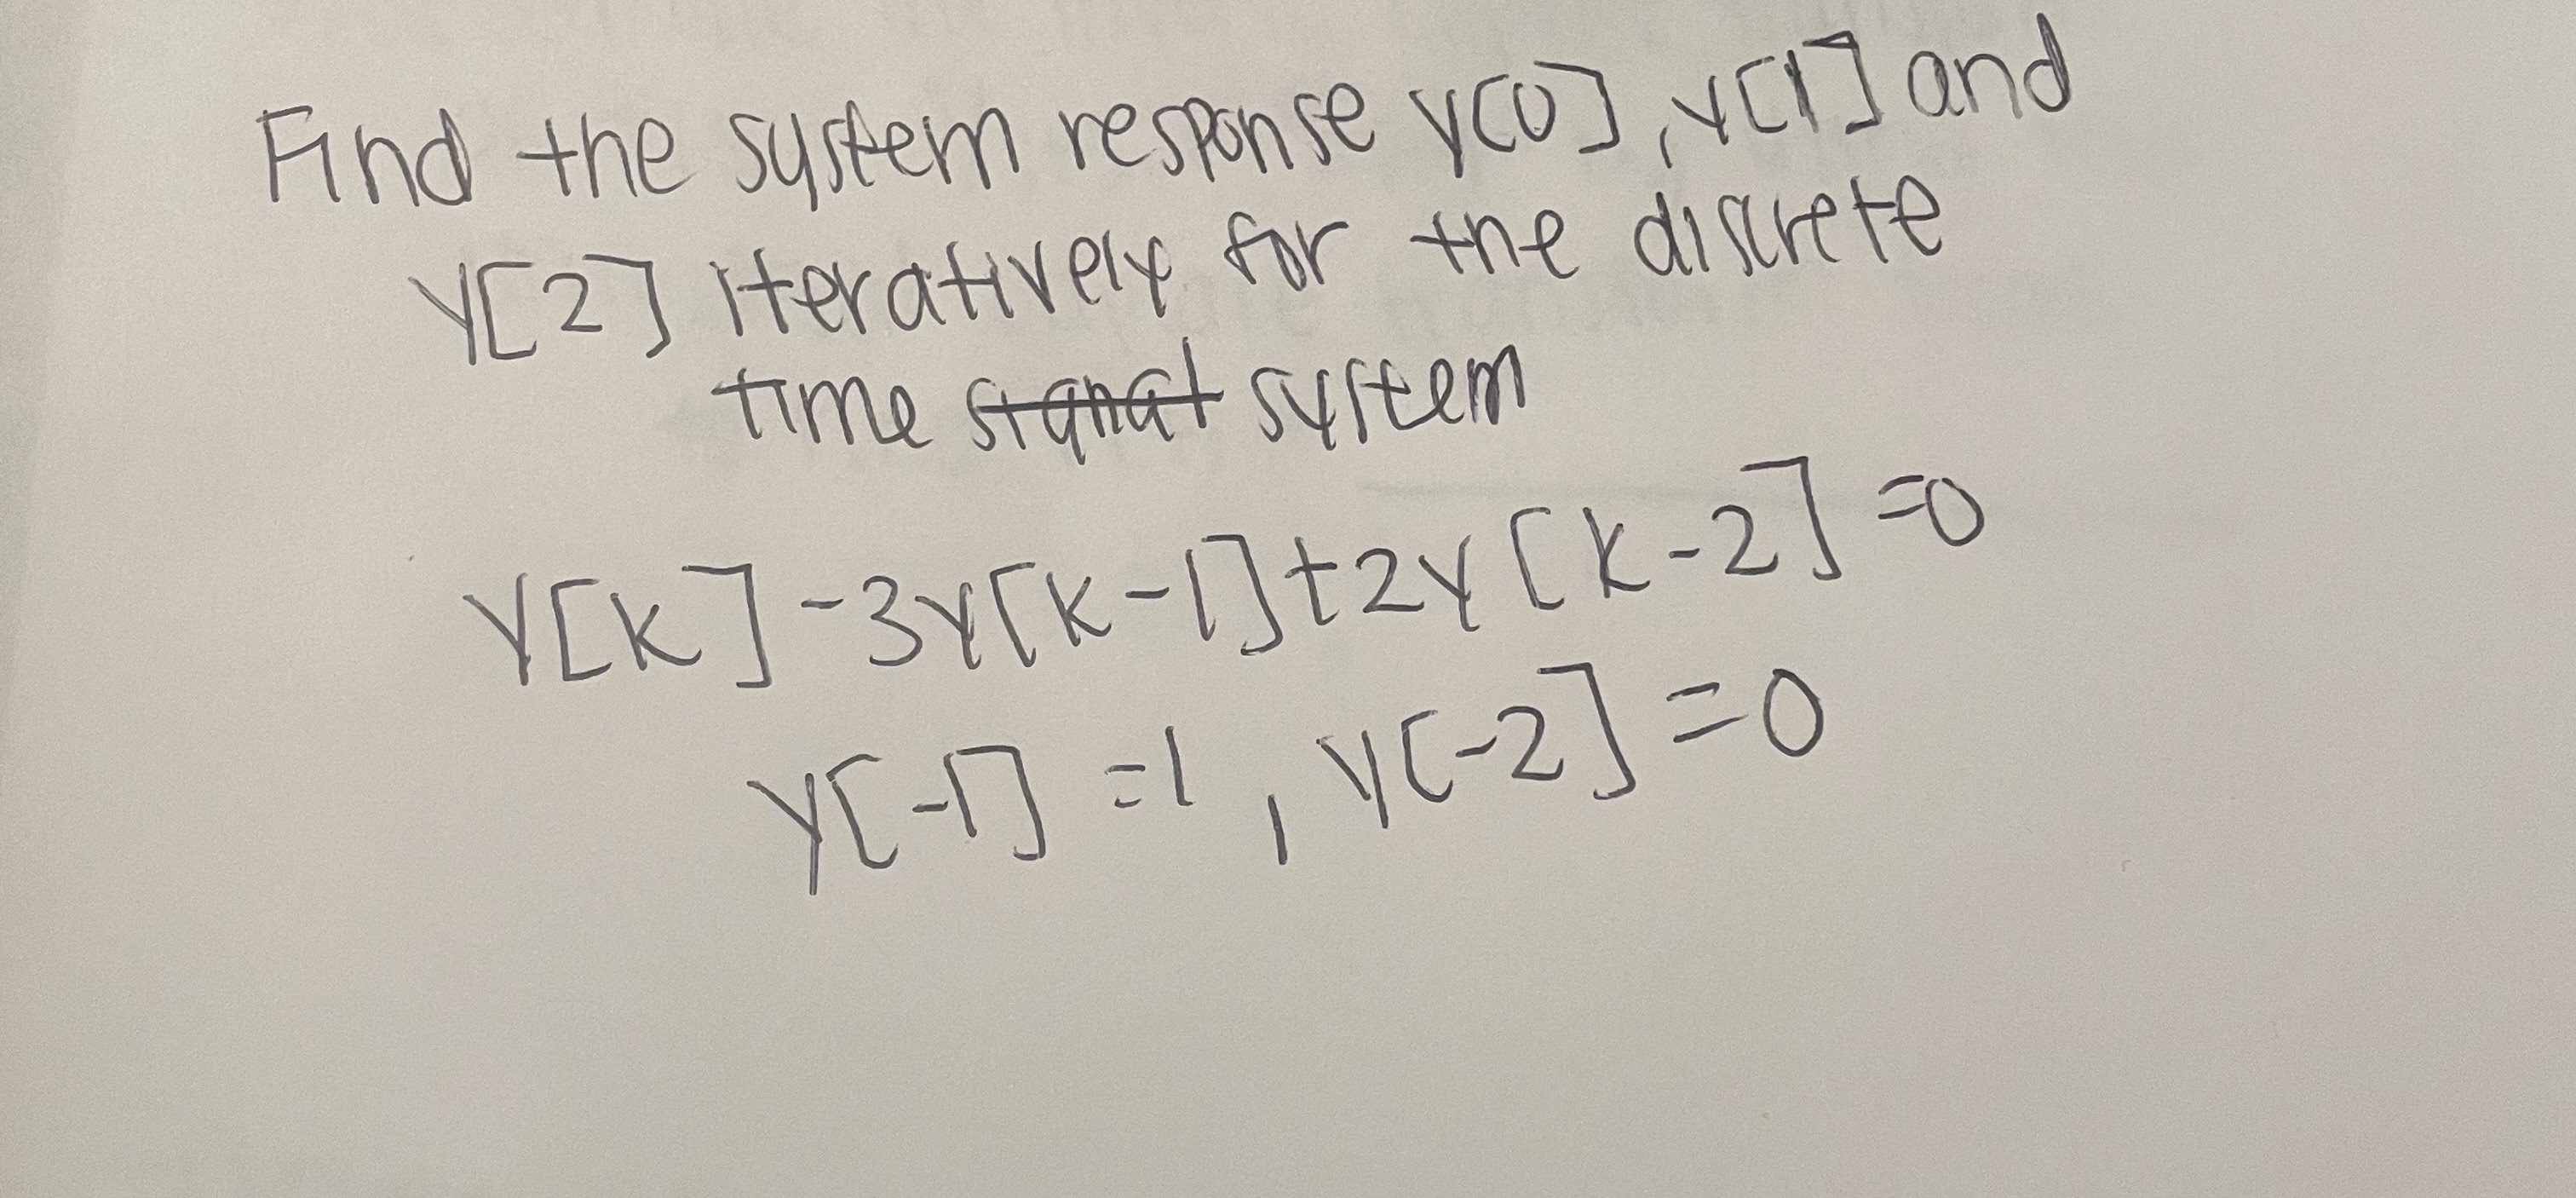 Find the system response y[0], y[1] and
y[2] iteratively for the discrete
time signal system
y[k] -3y[k-1]+2y[k-2]=0
y[-1] =1, y[-2]=0